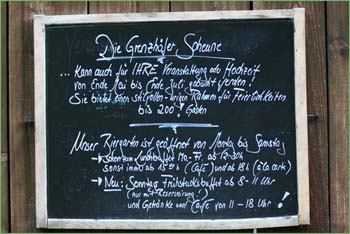 Die Grenzhöfer Scheune
... Kann auch für IHRE Veranstaltung od. Hochzeit
von Ende Mai bis Ende Juli gebucht werden!
Sie bietet einen stilvollen-urigen Rahmen für Feierlichkeiten
bis 200! Gästen
Unser Biergarten ist geöffnet von Montag bis Samstag
Mo-Fr. ab 12-30h
sonst immer ab 15 h (Café) und ab 18 h (à la carte)
Neu: Sonntags Frühstücksbuffet ab 8-11 Uhr
(nur mit Reservierung)
und Getränke und Café von 11-18 Uhr!